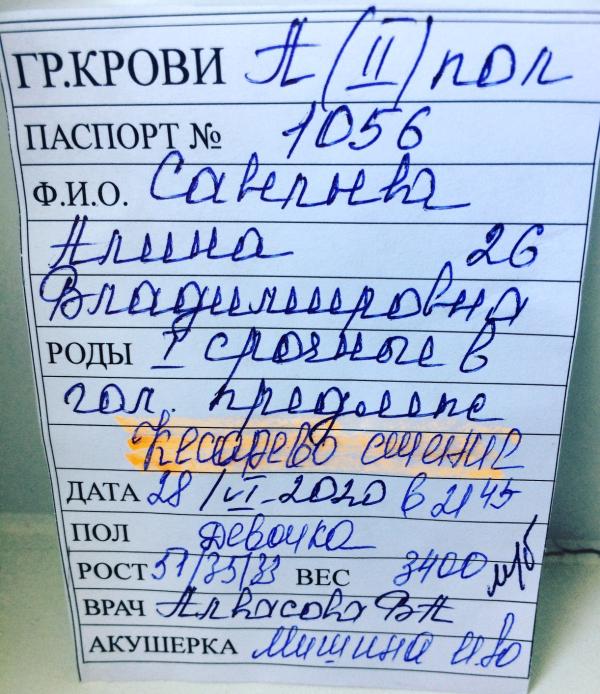 ГР.КРОВИ А (II) пол
ПАСПОРТ № 1056
Ф.И.О. Савельева
Алина 26
Владимировна
РОДЫ I срочные в
гол. предлеж
Кесарево сечение
ДАТА 28/VI-2020 в 21 45
ПОЛ девочка
РОСТ 51/35/33 ВЕС 3400
ВРАЧ ВА
АКУШЕРКА Мишина